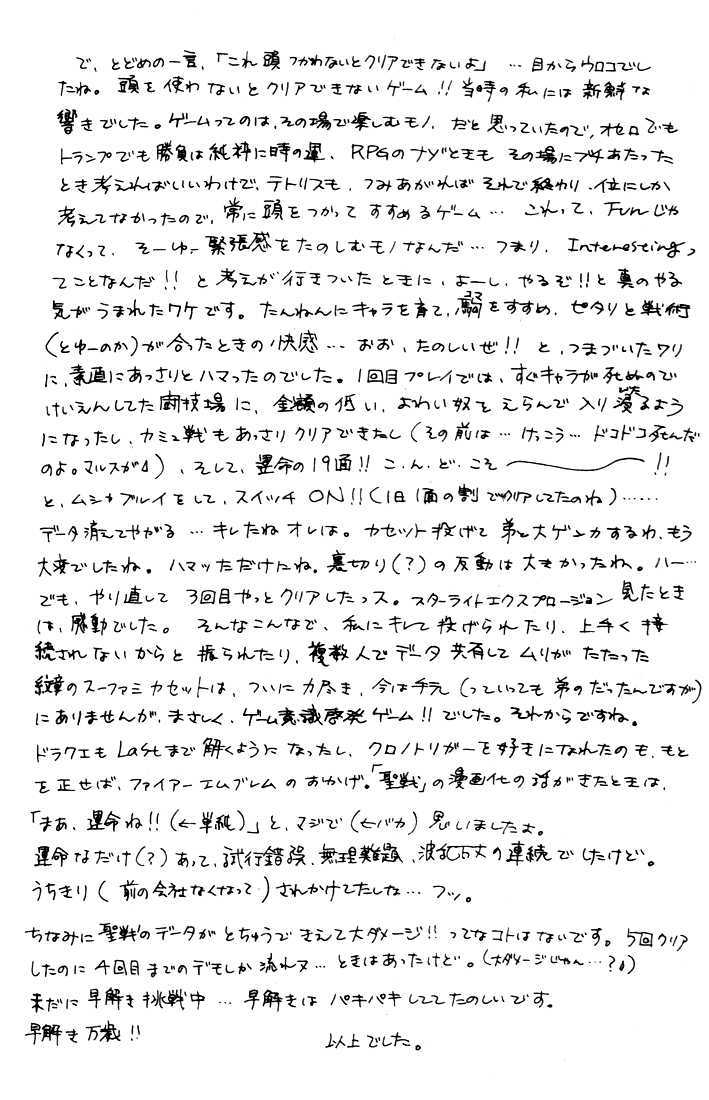 で、とどめの一言、「これ頭つかわないとクリアできないよ」…目からウロコでし
たね。頭を使わないとクリアできないゲーム!!当時の私には新鮮な
響きでした。ゲームってのは、その場で楽しむモノ、だと思っていたので、オセロでも
トランプでも勝負は紙袢に時の運、RPGのナゾときも その場にブチあたった
とき考えればいいわけで、テトリスも、つみあがればそれで終わり、位にしか
考えてなかったので、常に頭をつかってすすめるゲーム…これって、Funじゃ
なくって、そーゆー緊張感をたのしむモノなんだ…つまり、Interestingっ
てことなんだ!!と考えが行きついたときに、よーし、やるぞ!!と真のやる
気がうまれたワケです。たんねんにキャラを育て、駒をすすめ、ピタリと戦術
(とゆーのか)が合ったときの快感…おお、たのしいぜ!!と、つまづいたワリ
に、素直にあっさりとハマったのでした。1回目プレイでは、すぐキャラが死ぬので
けいえんしてた闘技場に、金額の低い、よわい奴をえらんで入り浸るよう
になったし、カミュ戦もあっさりクリアできたし(その前は…けっこう…ドコドコ死んだ
のよ。マルスが)、そして、運命の19面!!こ.ん.ど.こそ――!!
と、ムシャブルイをして、スイッチON!!(1日1面の割でクリアしてたのね)……
データ消えてやがる…キレたねオレは。カセット投げて弟と大ゲンカするわ、もう
大変でしたね。ハマッただけにね。裏切り(?)の反動は大きかったわ。ハー…
でも、やり直して3回目やっとクリアしたっス。スターライトエクスプロージョン見たとき
は、感動でした。そんなこんなで、私にキレて投げられたり、上手く接
続されないからと振られたり、複数人でデータ共有してムリがたたった
紋章のスーファミカセットは、ついに力尽き、今は手元(っていっても弟のだったんですが)
にありませんが、まさしく、ゲーム意識啓発ゲーム!!でした。それからですね。
ドラクエもLastまで解くようになったし、クロノトリガーを好きになれたのも、もと
を正せば、ファイアーエムブレムのおかげ。「聖戦」の漫画化の話がきたときは、
「まあ、運命ね!!(←単純)」と、マジで(←バカ)思いましたよ。
運命なだけ(?)あって、試行錯誤、無理難題、波乱万丈の連続でしたけど。
うちきり(前の会社なくなって)されかけてたしな…フッ。
ちなみに聖戦のデータがとちゅうできえて大ダメージ!!ってなコトはないです。5回クリア
したのに4回目までのデモしか流れヌ…ときはあったけど。(大ダメージじゃん…?)
未だに早解き挑戦中…早解きはパキパキしててたのしいです。
早解き万歳!!
以上でした。